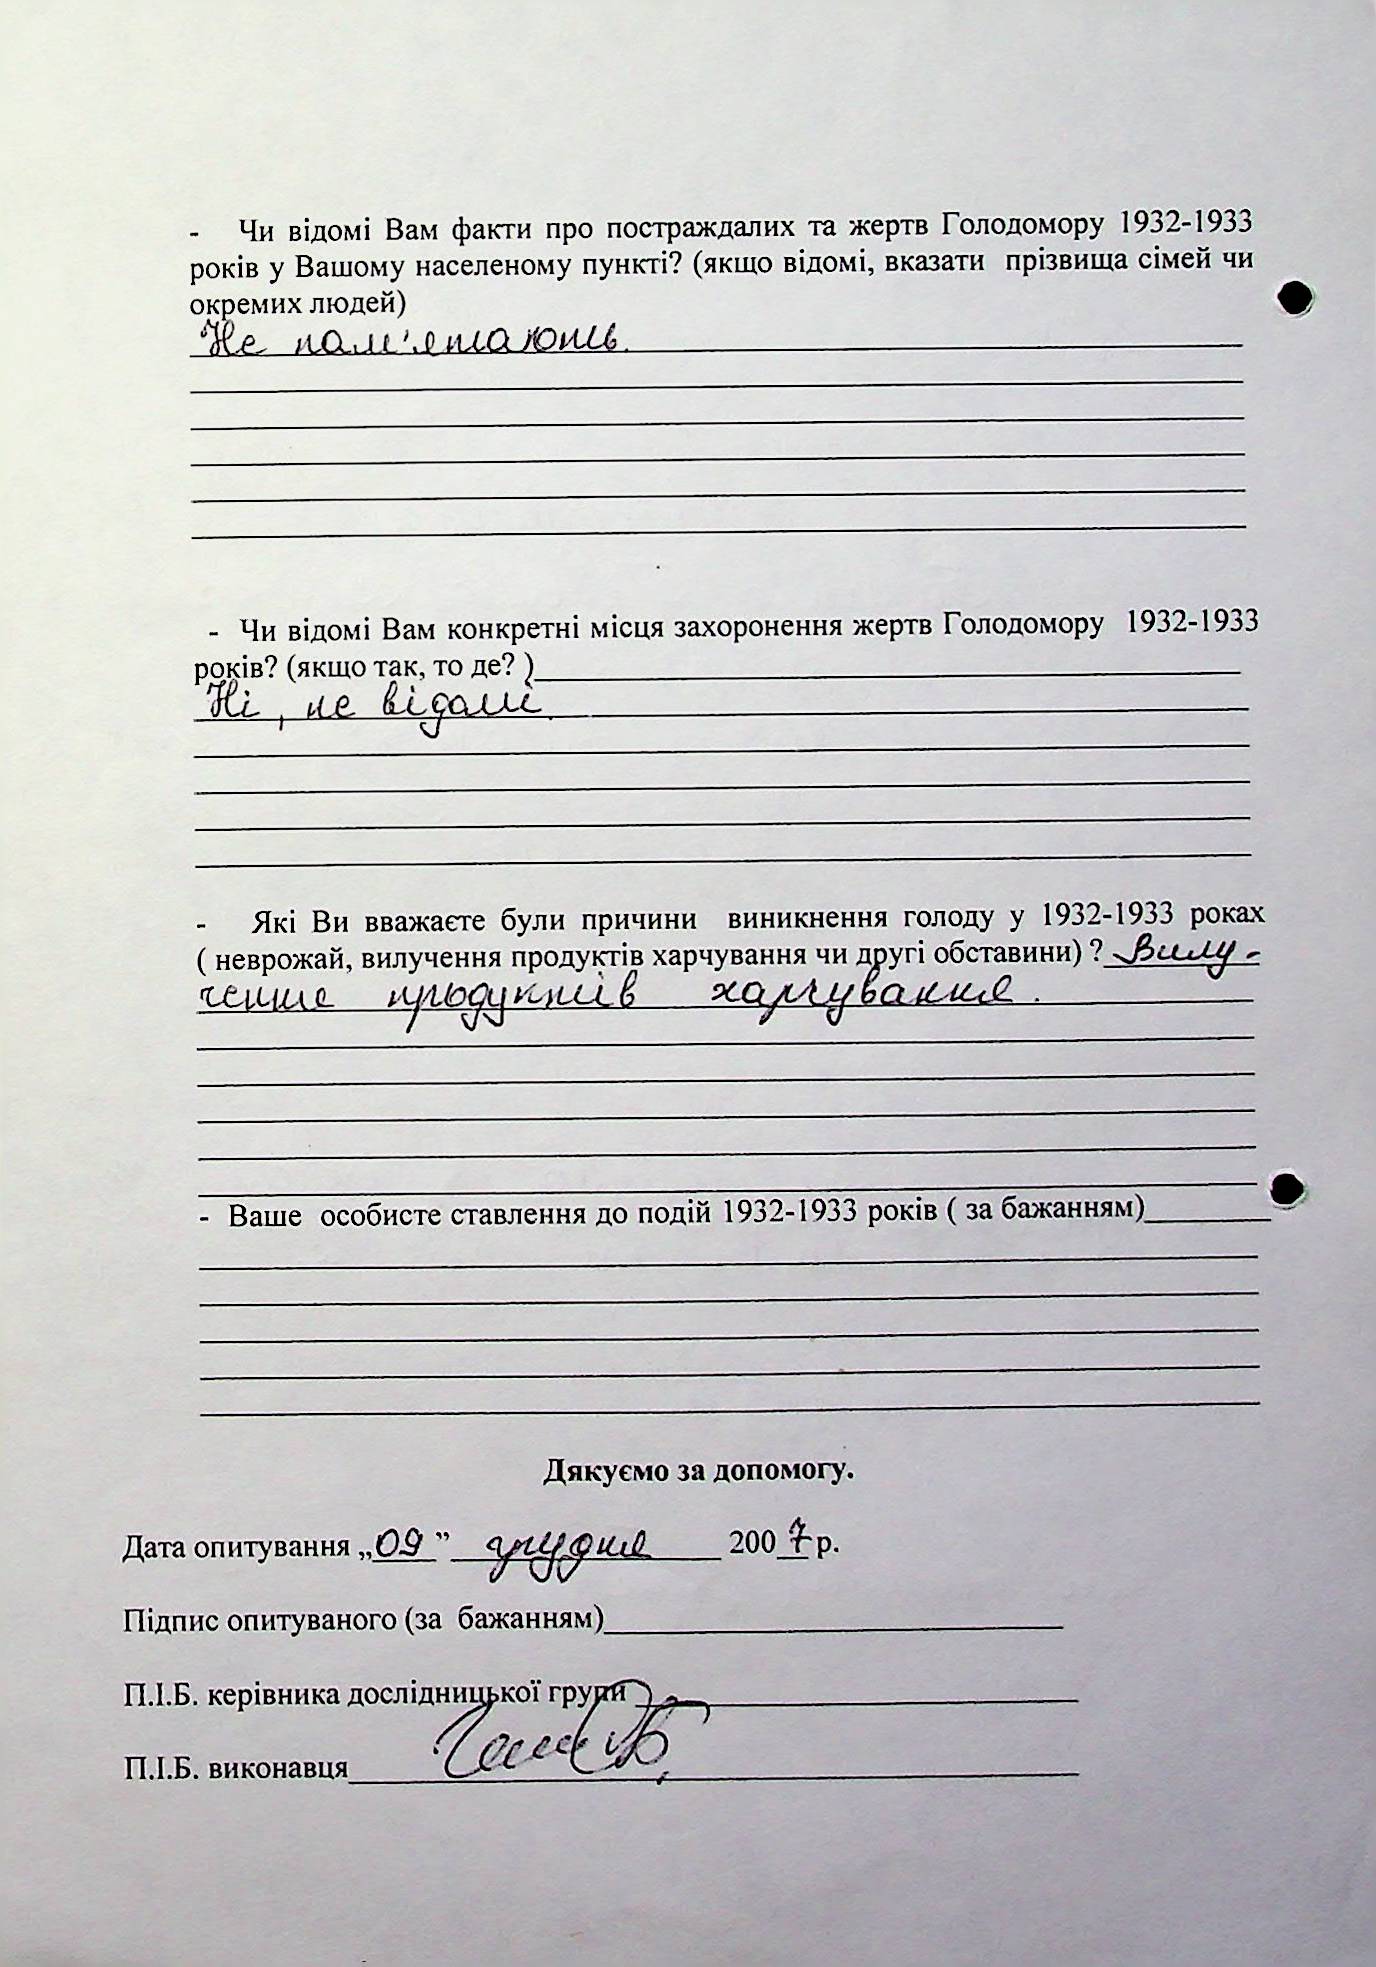 - Чи відомі Вам факти про постраждалих та жертв Голодомору 1932-1933
років у Вашому населеному пункті? (якщо відомі, вказати прізвища сімей чи
окремих людей)
Не пам'ятають.
- Чи відомі Вам конкретні місця захоронення жертв Голодомору 1932-1933
років? (якщо так, то де? )
Ні, не відомі.
- Які Ви вважаєте були причини виникнення голоду у 1932-1933 роках
( неврожай, вилучення продуктів харчування чи другі обставини) ? Вилу-
чення продуктів харчування.
- Ваше особисте ставлення до подій 1932-1933 років ( за бажанням)
Дякуємо за допомогу.
Дата опитування „09” грудня 2007 р.
Підпис опитуваного (за бажанням)
П.І.Б. керівника дослідницької групи
П.І.Б. виконавця